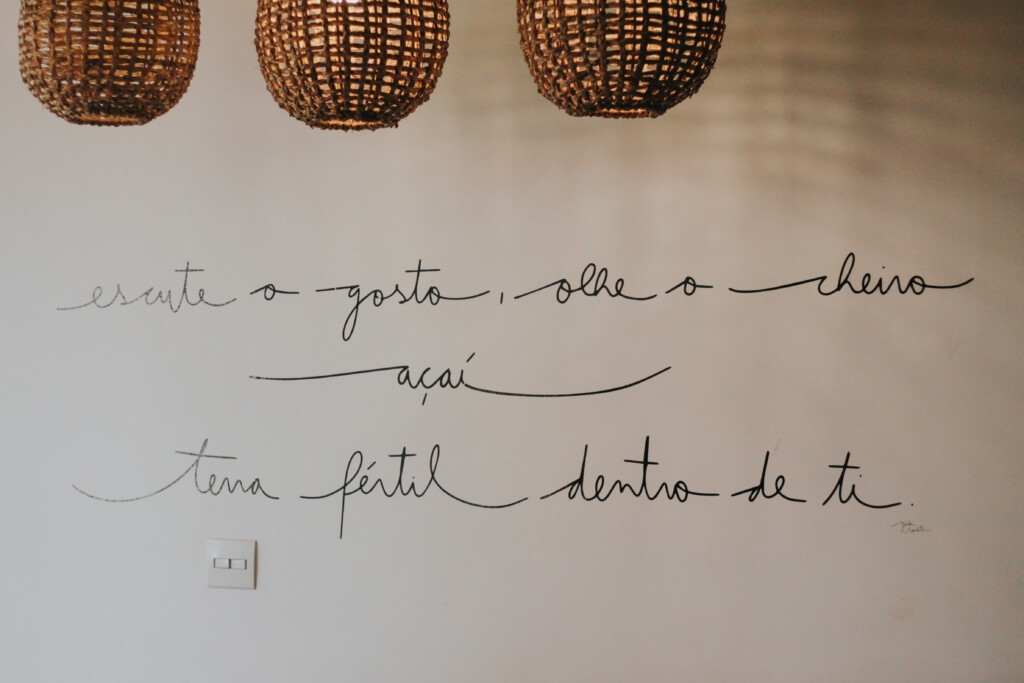 escute o gosto, olhe o cheiro
açaí
terra fértil dentro de ti.